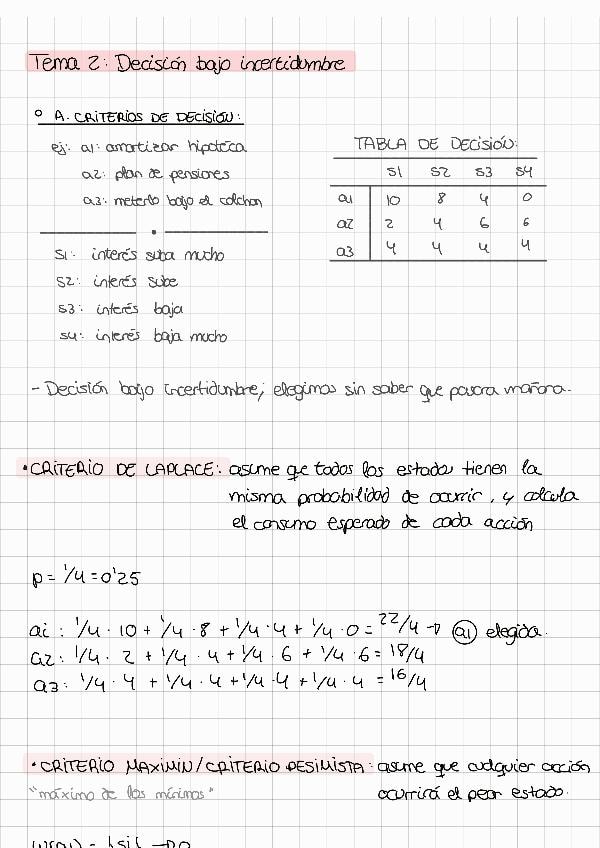 Tema 2: Decisión bajo incertidumbre
A. CRITERIOS DE DECISIÓN:
ej: a1: amortizar hipoteca
a2: plan de pensiones
a3: meterlo bajo el colchon
TABLA DE DECISIÓN:
S1 S2 S3 S4
a1 10 8 4 0
a2 2 4 6 6
a3 4 4 4 4
S1: interés suba mucho
S2: interés sube
S3: interés baja
S4: interés baja mucho
- Decisión bajo incertidumbre; elegimos sin saber que pasara mañana.
• CRITERIO DE LAPLACE: asume que todos los estados tienen la
misma probabilidad de ocurrir, y calcula
el consumo esperado de cada acción
p = 1/4 = 0'25
a1: 1/4 · 10 + 1/4 · 8 + 1/4 · 4 + 1/4 · 0 = 22/4 → a1 elegida.
a2: 1/4 · 2 + 1/4 · 4 + 1/4 · 6 + 1/4 · 6 = 18/4
a3: 1/4 · 4 + 1/4 · 4 + 1/4 · 4 + 1/4 · 4 = 16/4
• CRITERIO MAXIMIN/CRITERIO PESIMISTA: asume que cualquier acción
"máximo de los mínimos" ocurrirá el peor estado.